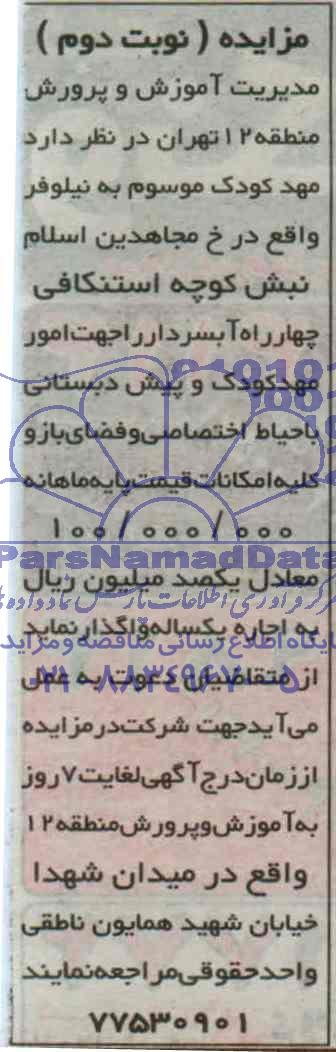 مزایده ( نوبت دوم )
مدیریت آموزش و پرورش
منطقه ۱۲ تهران در نظر دارد
مهد کودک موسوم به نیلوفر
واقع در خ مجاهدین اسلام
نبش کوچه استنکافی
چهارراه آبسردار را جهت امور
مهدکودک و پیش دبستانی
باحیاط اختصاصی وفضای بازو
کلیه امکانات قیمت پایه ماهانه
۱۰۰/۰۰۰/۰۰۰
ParsNamadData
معادل یکصد میلیون ریال
به اجاره یکساله واگذار نماید
پایگاه اطلاع رسانی مناقصه و مزایده
از متقاضیان دعوت به عمل
۰۲۱-۸۸۳۴۹۶۷۰-۵
می آید جهت شرکت در مزایده
از زمان درج آگهی لغایت ۷ روز
به آموزش وپرورش منطقه ۱۲
واقع در میدان شهدا
خیابان شهید همایون ناطقی
واحد حقوقی مراجعه نمایند
۷۷۵۳۰۹۰۱